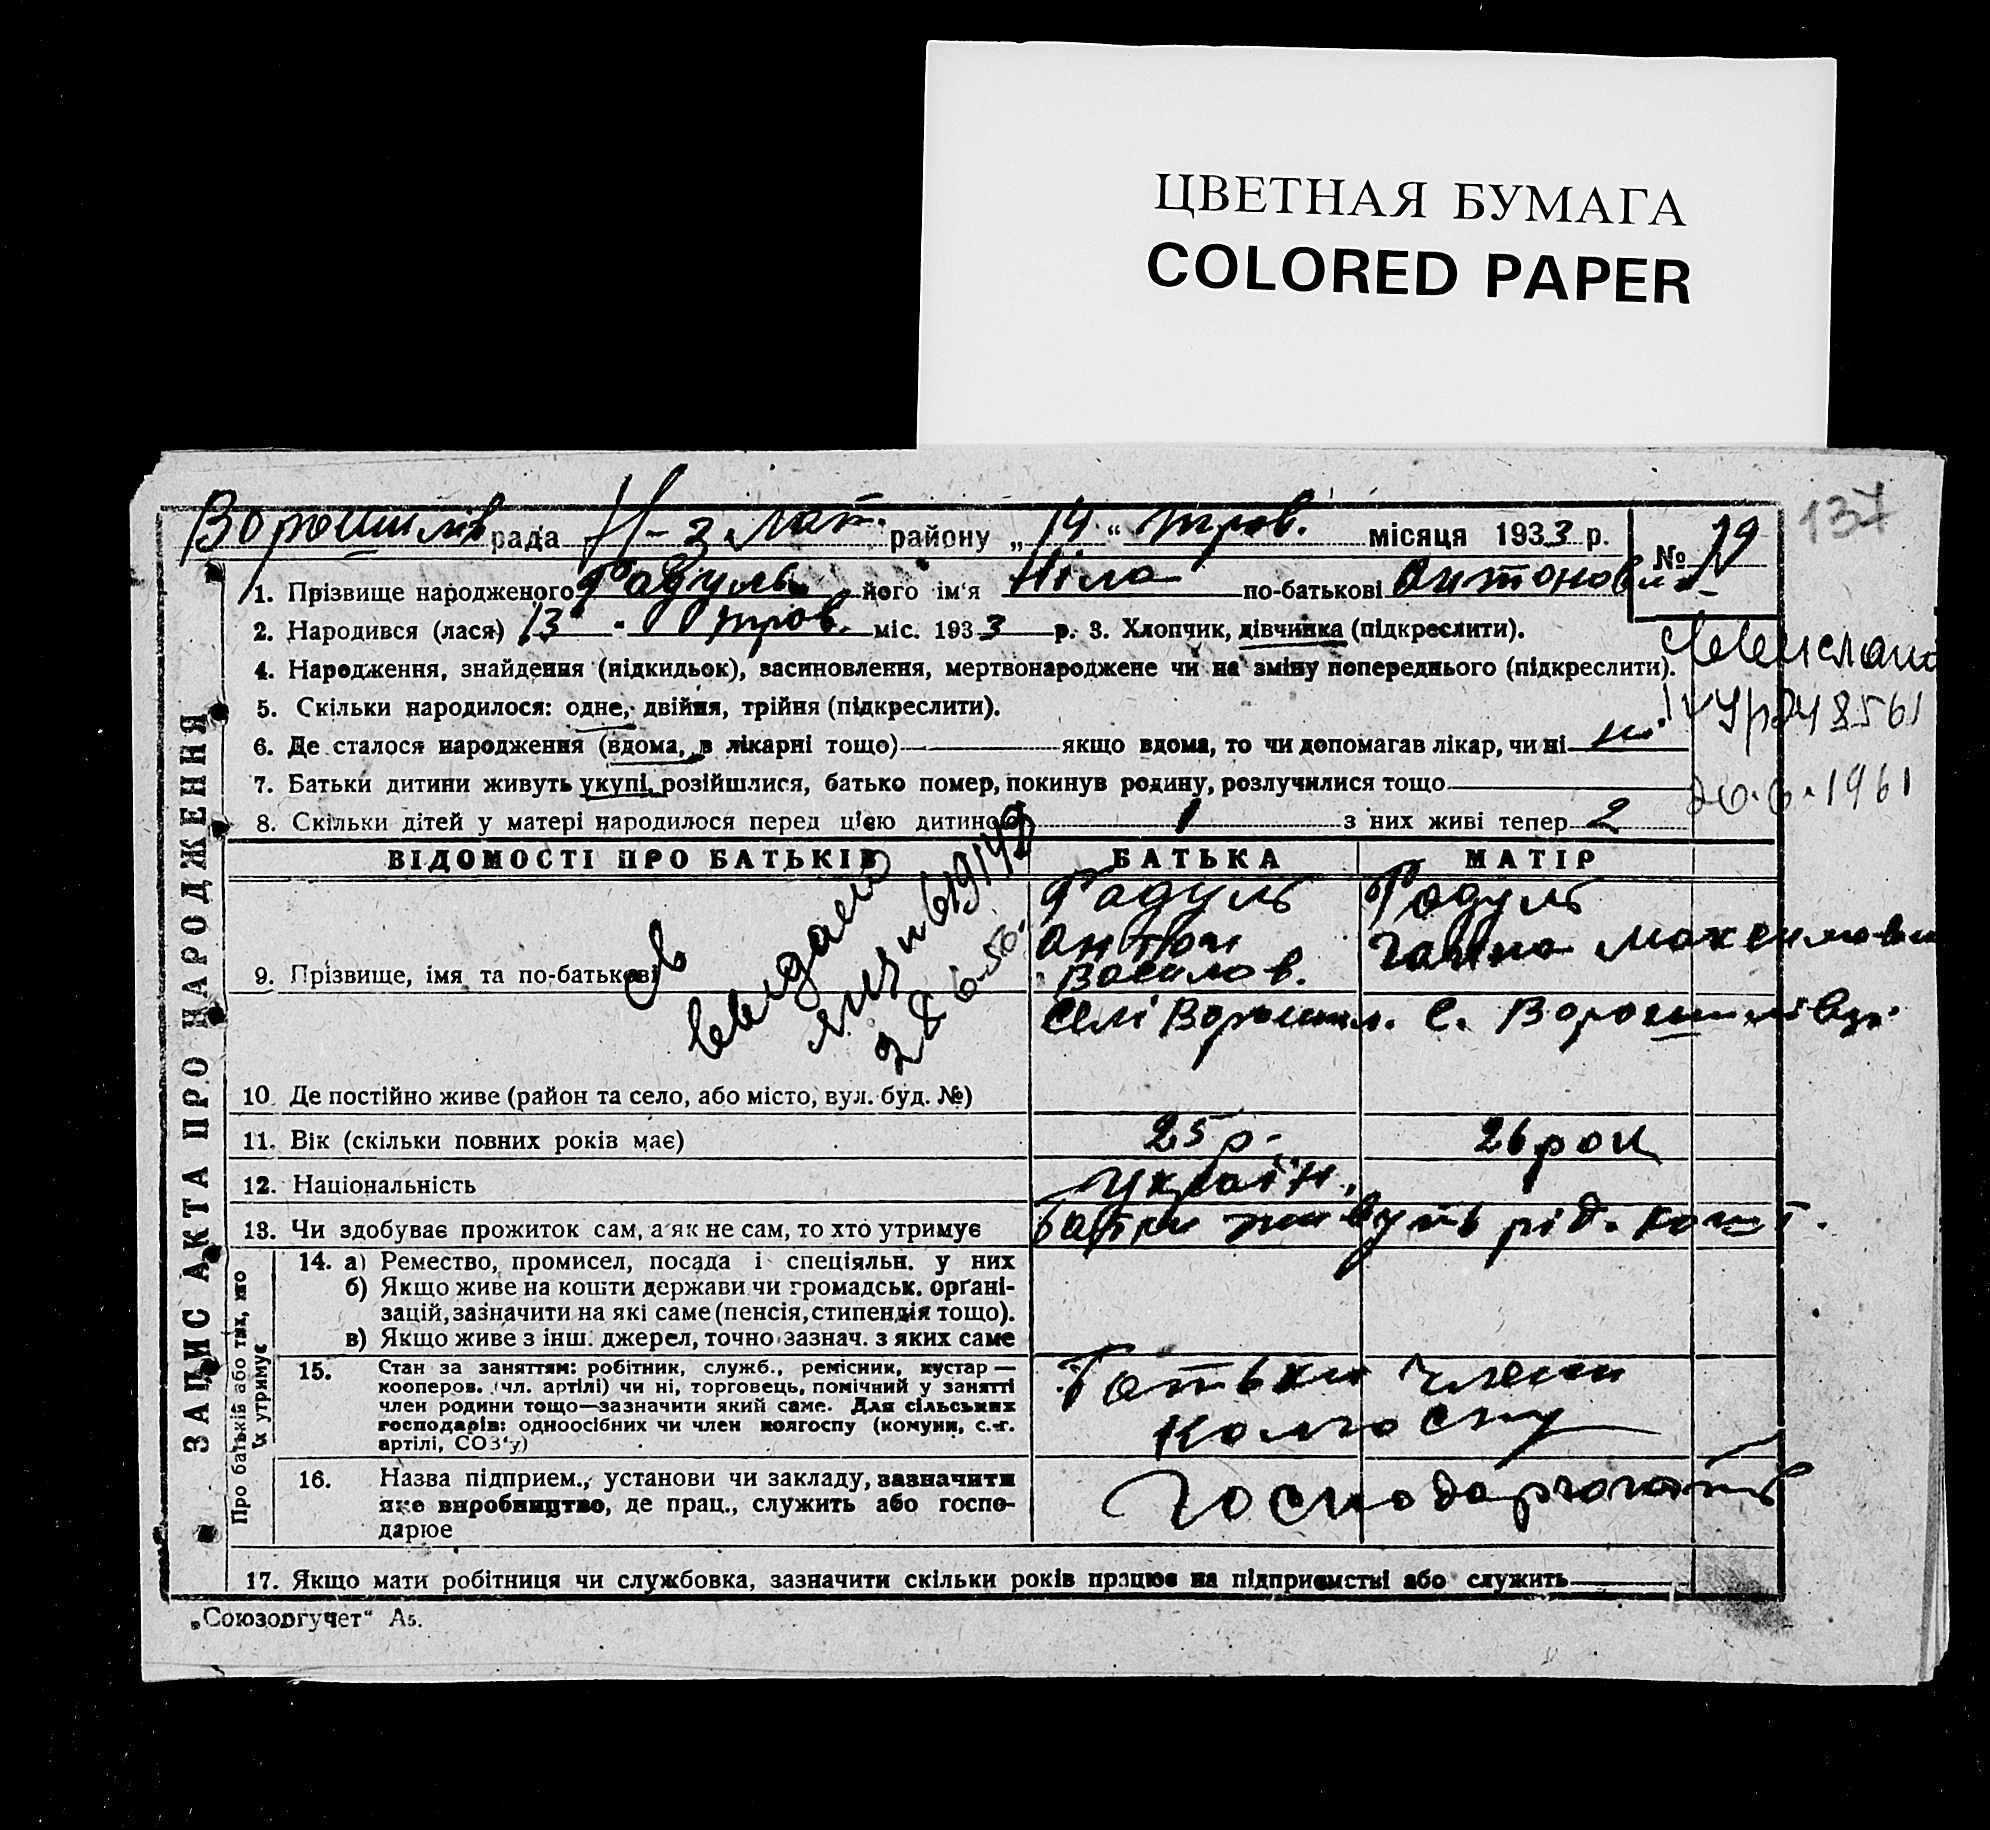 ЦВЕТНАЯ БУМАГА
COLORED PAPER
137
Ворошилів рада Н-Злат. району „14“ трав. місяця 1933 р. № 19
1. Прізвище народженого Радуль його ім'я Ніла по-батькові Антоновна
2. Народився (лася) 13 трав. міс. 1933 р. 3. Хлопчик, дівчинка (підкреслити).
4. Народження, знайдення (підкидьок), засиновлення, мертвонароджене чи на зміну попереднього (підкреслити).
5. Скільки народилося: одне, двійня, трійня (підкреслити).
6. Де сталося народження (вдома, в лікарні тощо) якщо вдома, то чи допомагав лікар, чи ні ні
7. Батьки дитини живуть укупі, розійшлися, батько помер, покинув родину, розлучилися тощо
8. Скільки дітей у матері народилося перед цією дитиною 1 з них живі тепер 2
Выслано
048561
20.6.1961
ЗАПИС АКТА ПРО НАРОДЖЕННЯ
ВІДОМОСТІ ПРО БАТЬКІВ БАТЬКА МАТІР
9. Прізвище, імя та по-батькові
Радуль Антон Василов.
Радуль Ганна Максимовн
Св выдано
619142
28.6.50.
10. Де постійно живе (район та село, або місто, вул. буд. №)
Селі Ворошил. с. Ворошилівці.
11. Вік (скільки повних років має) 25 р. 26 рок
12. Національність Україн.
13. Чи здобуває прожиток сам, а як не сам, то хто утримує Батьки живуть рід. кошт.
Про батьків або тих, хто їх утримує
14. а) Ремество, промисел, посада і спеціяльн. у них
б) Якщо живе на кошти держави чи громадськ. органі-
зацій, зазначити на які саме (пенсія, стипендія тощо).
в) Якщо живе з інш. джерел, точно зазнач. з яких саме
15. Стан за заняттям: робітник, служб., ремісник, кустар —
кооперов. (чл. артілі) чи ні, торговець, помічний у занятті
член родини тощо—зазначити який саме. Для сільських
господарів: одноосібних чи член колгоспу (комуни, с.-г.
артілі, СОЗ'у)
Батьки члени
колгоспу
16. Назва підприєм., установи чи закладу, зазначити
яке виробництво, де прац., служить або госпо-
дарює
Господарюють
17. Якщо мати робітниця чи службовка, зазначити скільки років працює на підприємстві або служить
„Союзоргучет“ А5.